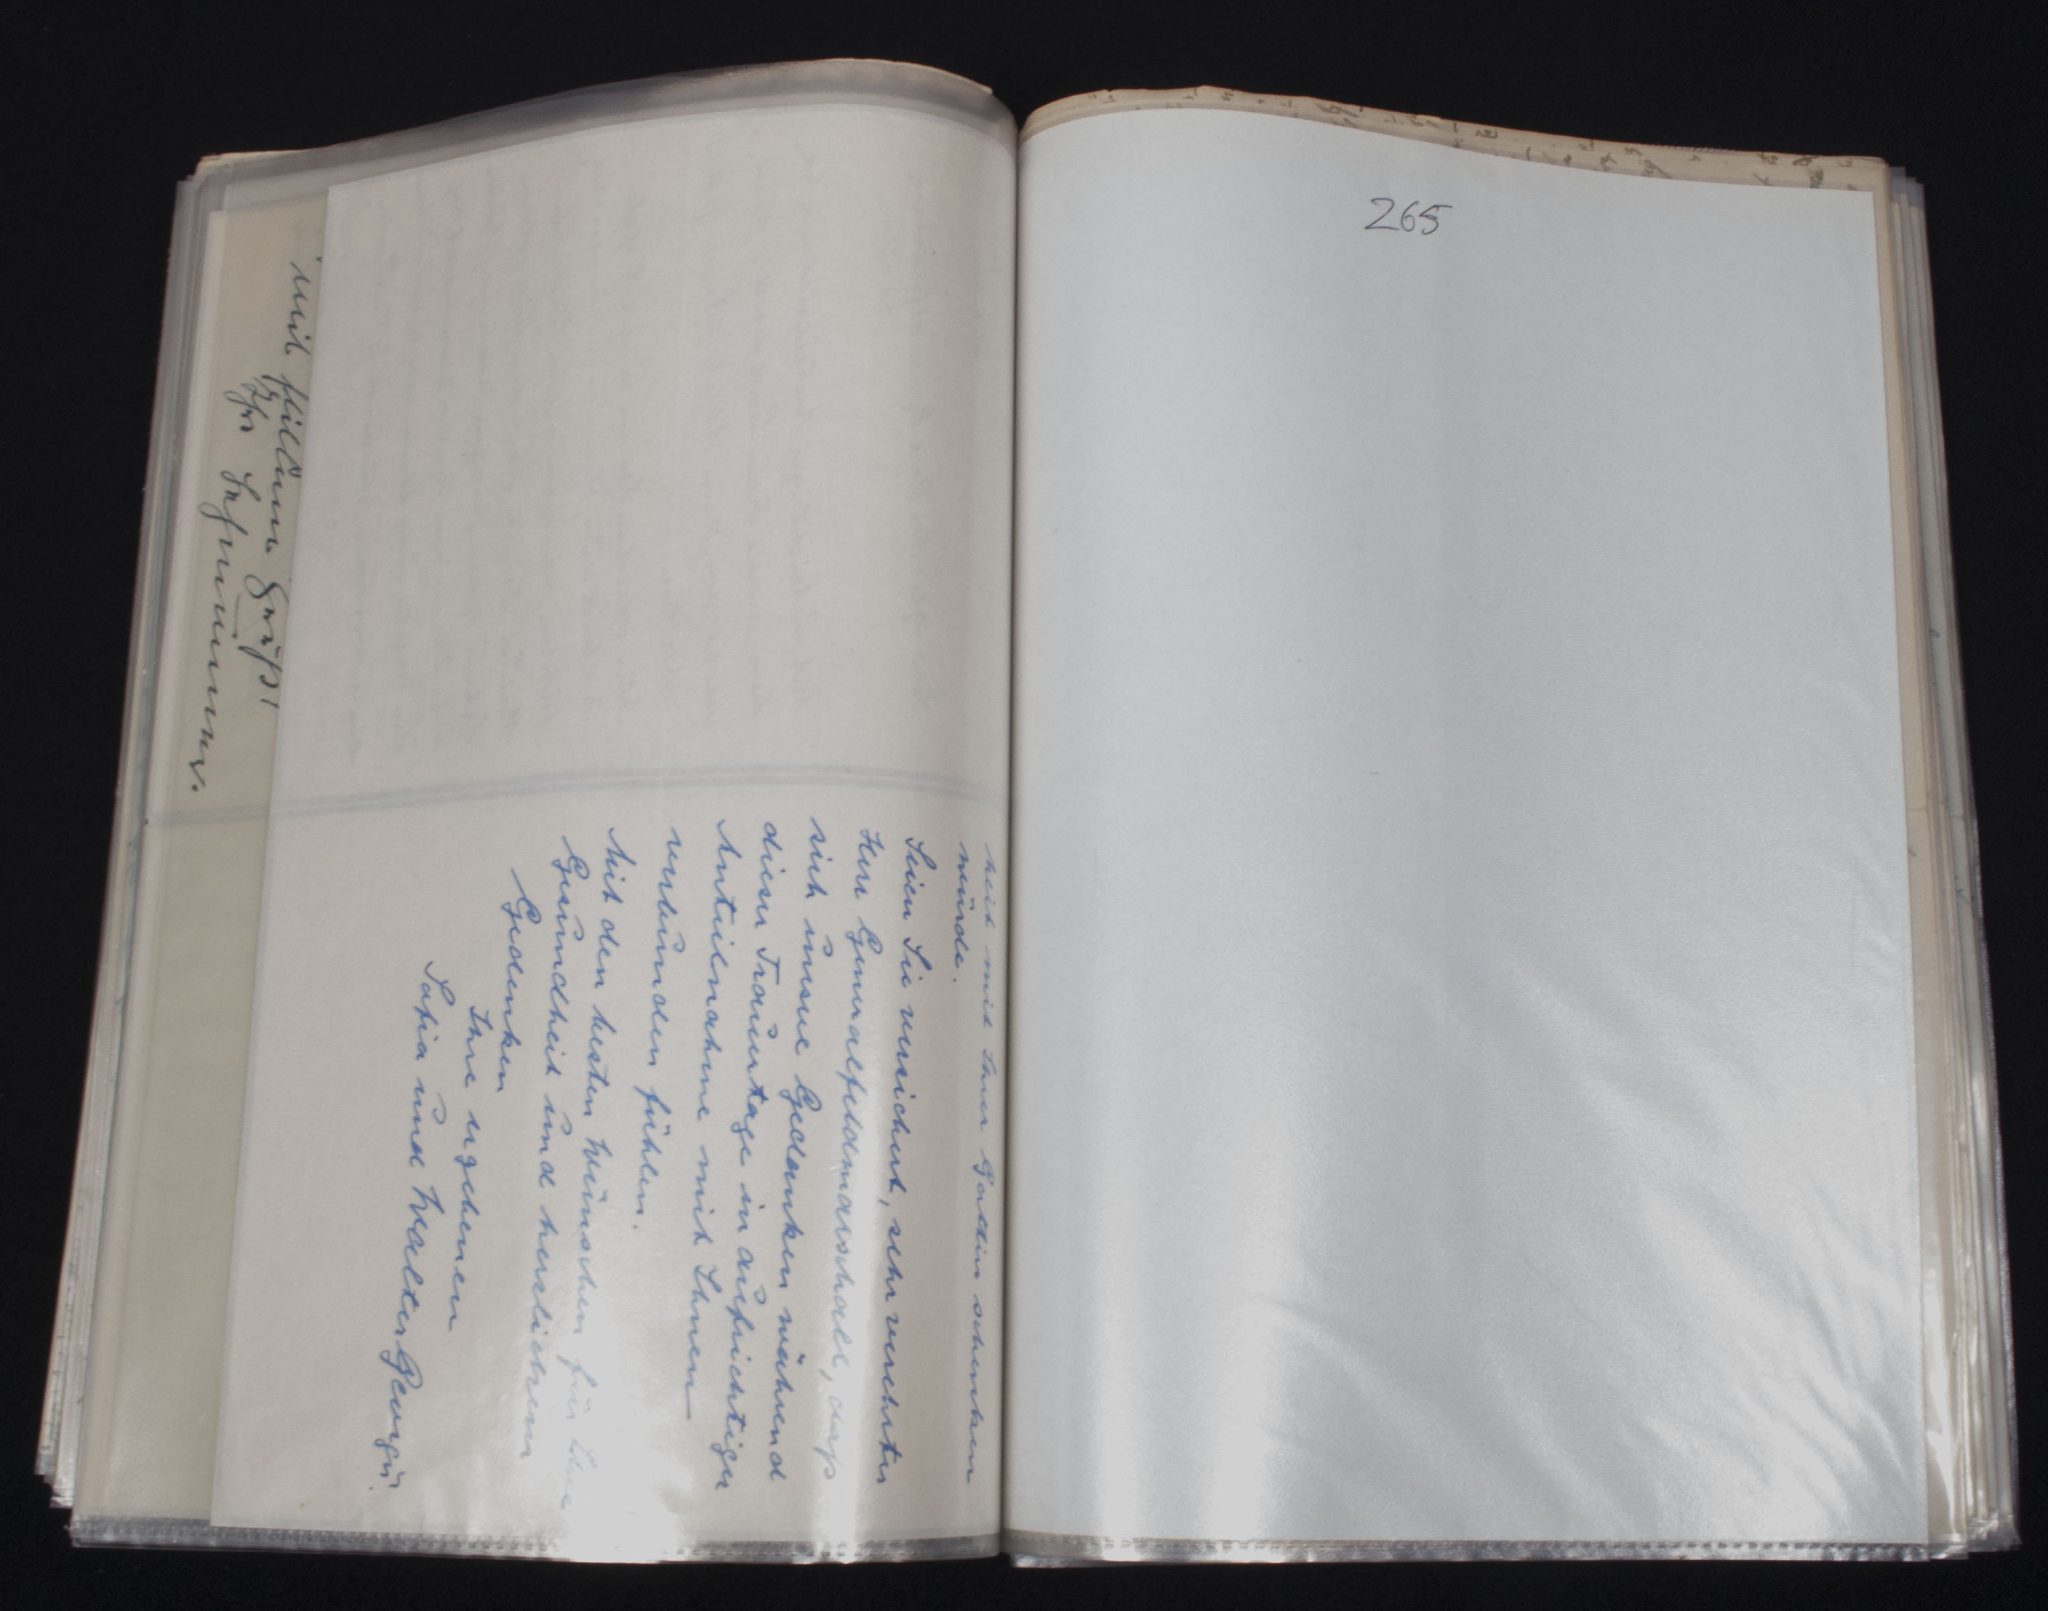 mit stillem Gruß!
Ihr
heit mit Ihrer Gattin schenken
würde.
Seien Sie versichert, sehr verehrter
Herr Generalfeldmarschall, dass
sich unsere Gedanken während
dieser Trauertage in aufrichtiger
Anteilnahme mit Ihnen
verbunden fühlen.
Mit den besten Wünschen für Ihre
Gesundheit und herzlichem
Gedenken
Ihre ergebenen
Sofia und Walter Georgii.
265